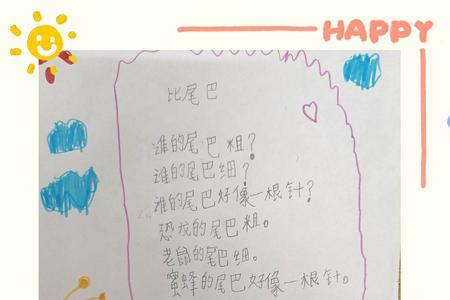 HAPPY
比尾巴
谁的尾巴粗?
谁的尾巴细?
谁的尾巴好像一根针?
恐龙的尾巴粗。
老鼠的尾巴细。
蜜蜂的尾巴好像一根针。